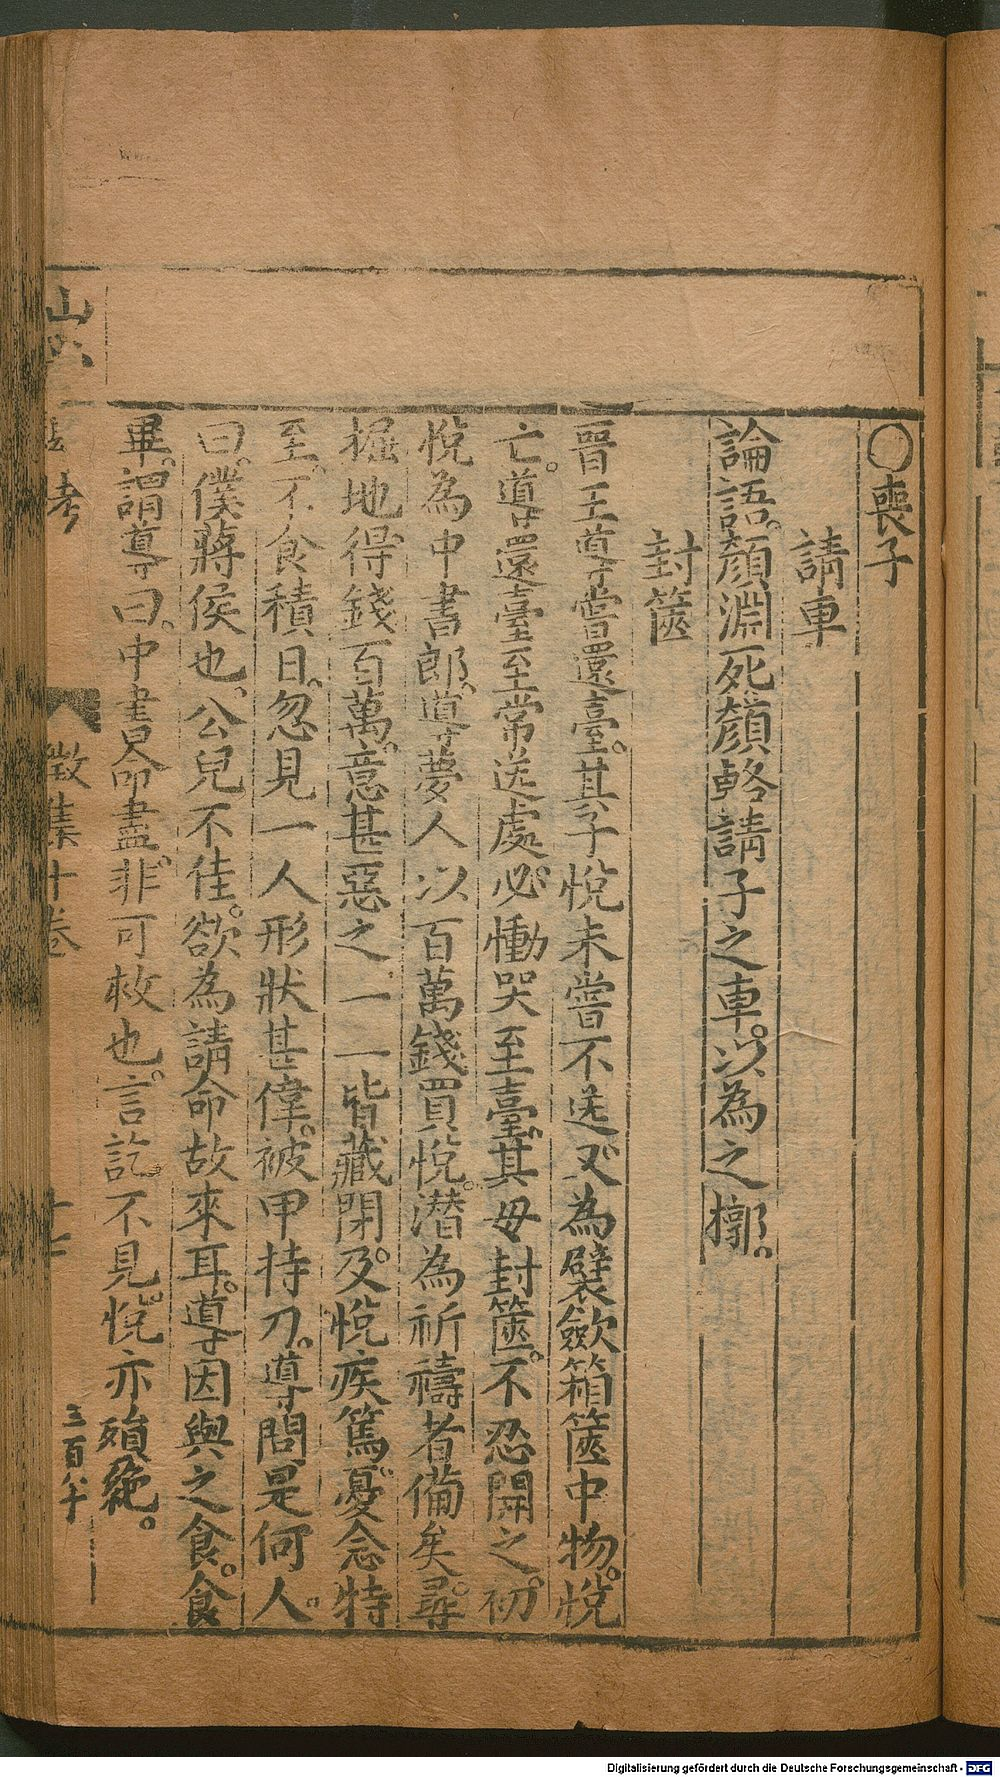 〇喪子
請車
論語。顏淵死顏輅請子之車。以為之槨。
封篋
晉王導嘗還臺。其子悅未嘗不送又為襞斂箱篋中物。悅
亡。導還臺至常送處必慟哭至臺。其母封篋。不忍開之。初
悅為中書郎。導夢人以百萬錢買悅。潛為祈禱者備矣。尋
掘地得錢百萬。意甚惡之一一皆藏閉。及悅疾篤。憂念特
至。不食積日。忽見一人形狀甚偉。被甲持刀。導問是何人。
曰。僕蔣侯也。公兒不佳。欲為請命故來耳。導因與之食。食
畢。謂導曰。中書命盡。非可救也。言訖不見。悅亦殞絕。
考
徵集十卷
三百八十
Digitalisierung gefördert durch die Deutsche Forschungsgemeinschaft - DFG